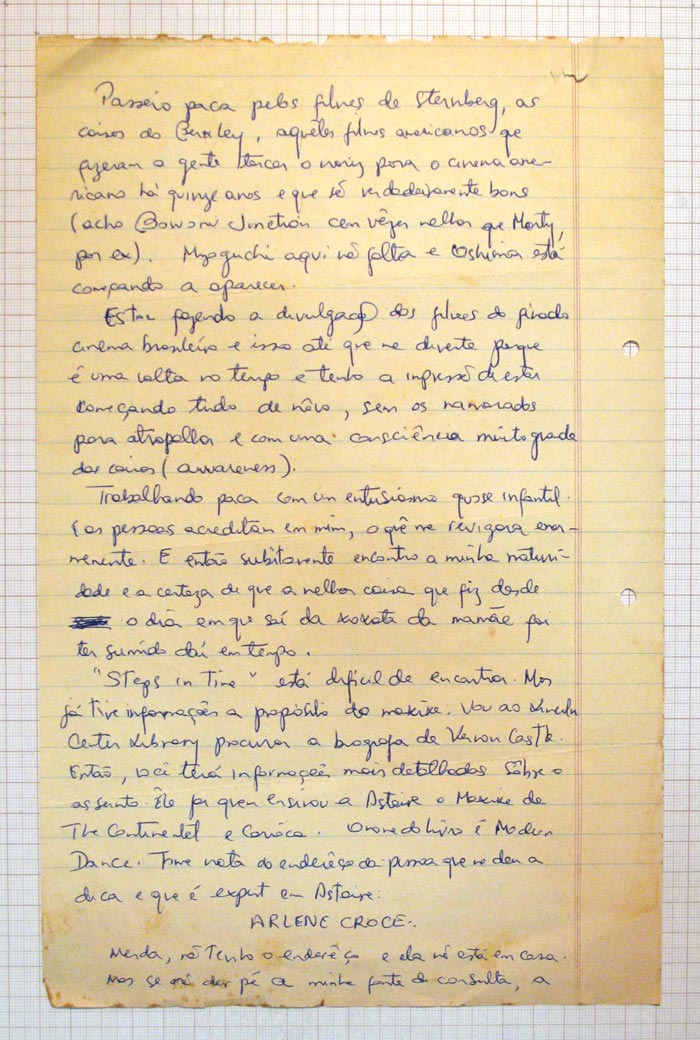 Passeio paca pelos filmes de Sternberg, as
coisas do Berkley, aquêles filmes americanos que
fizeram a gente torcer o nariz para o cinema ame-
ricano há quinze anos e que são verdadeiramente bons
(acho Bowani Junction cem vêzes melhor que Marty,
por ex). Mizoguchi aqui não falta e Oshima está
começando a aparecer.
Estou fazendo a divulgação dos filmes do
cinema brasileiro e isso até que me diverte porque
é uma volta no tempo e tenho a impressão de estar
começando tudo de nôvo, sem os namorados
para atropellar e com uma consciência muito grande
das coisas (awareness).
Trabalhando paca com um entusiasmo quase infantil.
E as pessoas acreditam em mim, o quê me revigora enor-
memente. E então subitamente encontro a minha maturi-
dade e a certeza de que a melhor coisa que fiz desde
o dia em que saí da xoxota da mamãe foi
ter sumido daí em tempo.
"Steps in Time" está difícil de encontrar. Mas
já tive informações a propósito do maxixe. Vou ao Lincoln
Center Library procurar a biografia de Vernon Castle.
Então, você terá informações mais detalhadas sôbre o
assunto. Êle foi quem ensinou a Astaire o Maxixe de
The Continental e Carioca. O nome do livro é Modern
Dance. Tome nota do enderêço da pessoa que me deu a
dica e que é expert em Astaire:
ARLENE CROCE.
Merda, não tenho o enderêço e ela não está em casa.
Mas se der pé a minha fonte de consulta, a